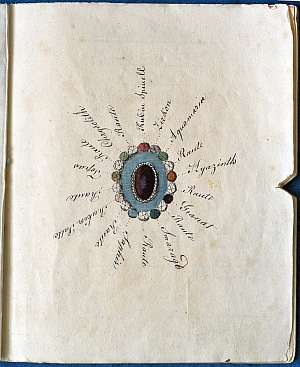 Rubin Spinell
Zirkon
Aquamarin
Raute
Hyazinth
Raute
Granat
Raute
Smaragd
Raute
Saphir
Raute
Rubin
Raute
Topas
Raute
Raute